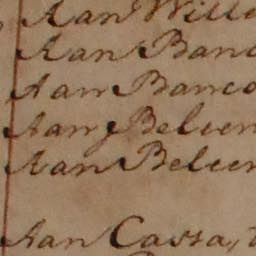 Aan Will
Aan Banc
Aan Banco
Aan Beleen
Aan Beleen
Aan Cassa,